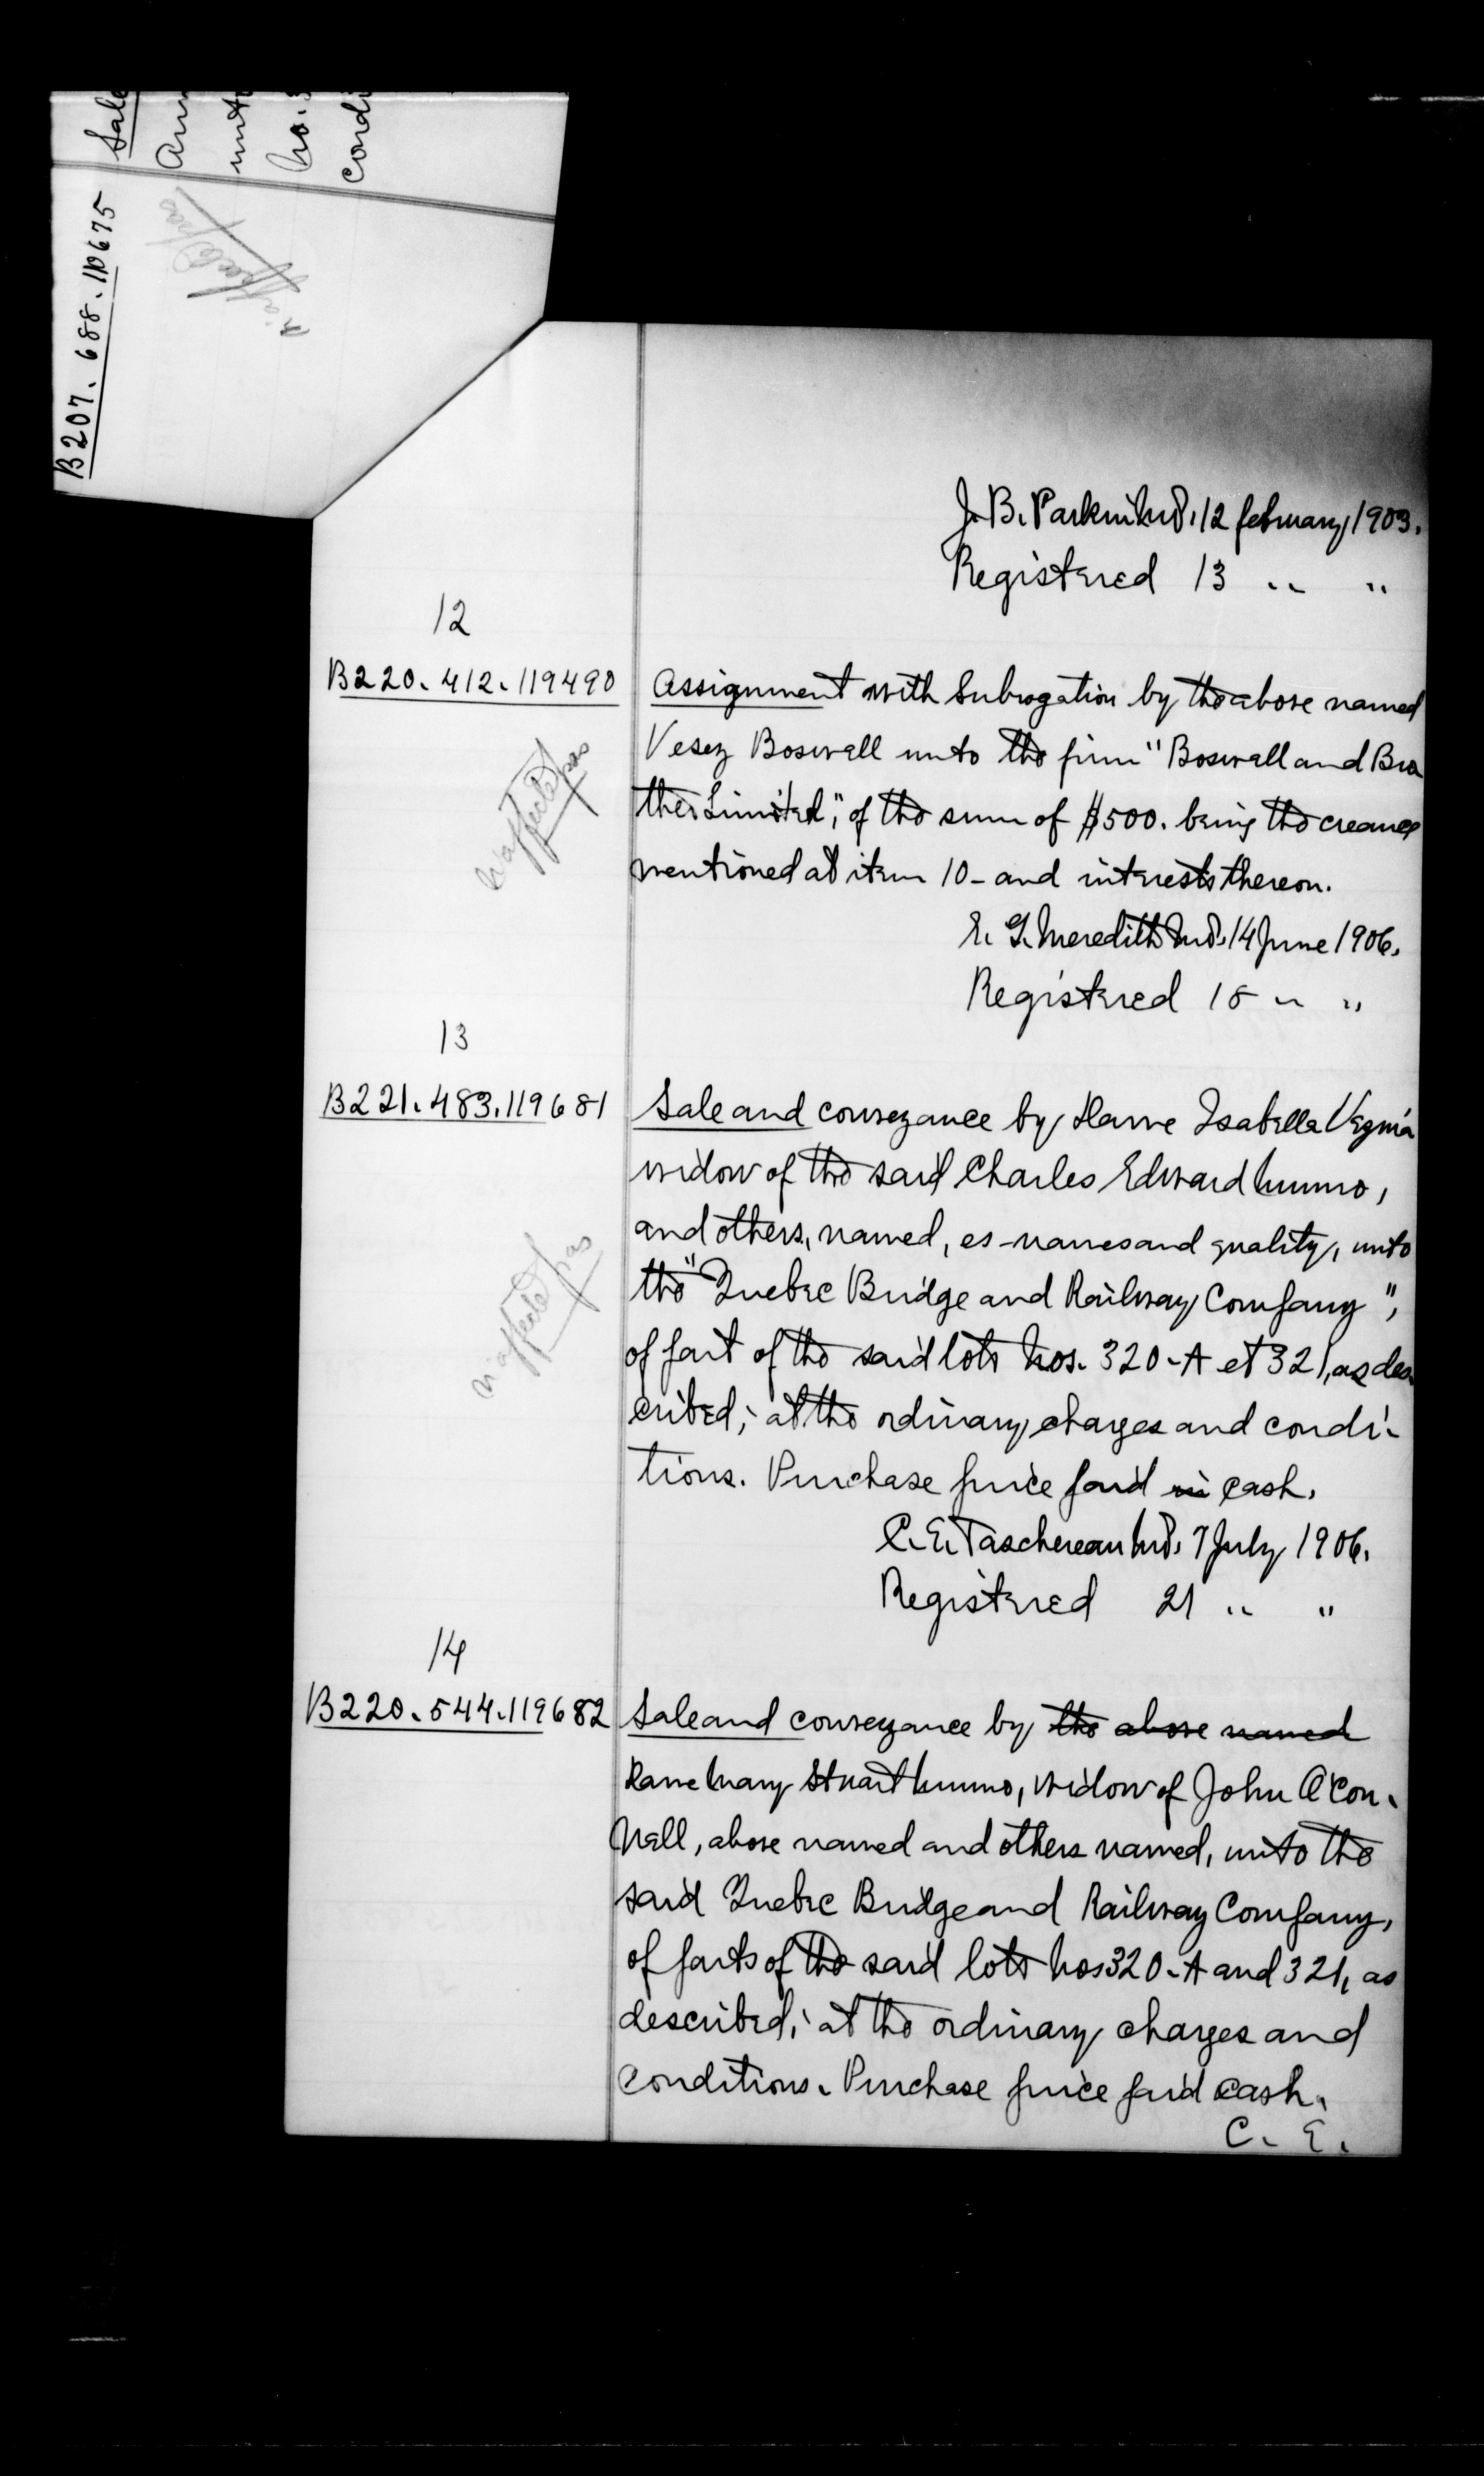 Sale
Ann
unto
No. 3
condi
B207. 688. 110675
n'affecte pas
J. B. Parkin N.P. 12 february, 1903.
Registered 13 " "
12
B220. 412. 119490
n'affecte pas
Assignment with Subrogation by the above named
Vesey Boswell unto the firm "Boswell and Bro
ther Limited", of the sum of $500. being the creance
mentioned at item 10- and interests thereon.
E. G. Meredith N.P. 14 June 1906.
Registered 18 " "
13
B221. 483. 119681
n'affecte pas
Sale and conveyance by Dame Isabella
widow of the said Charles Edward Munro,
and others, named, es-names and quality, unto
the "Quebec Bridge and Railway Company",
of part of the said lots Nos. 320-A et 321, as des-
cribed; at the ordinary charges and condi-
tions. Purchase price paid in cash.
C. E. Taschereau N.P. 7 July, 1906.
Registered 21 " "
14
B220. 544. 119682
Sale and conveyance by the above named
Dame Mary Stuart Munro, widow of John O'Con-
Nell, above named and others named, unto the
said Quebec Bridge and Railway Company,
of parts of the said lots Nos 320-A and 321, as
described; at the ordinary charges and
conditions. Purchase price paid cash.
C. E.